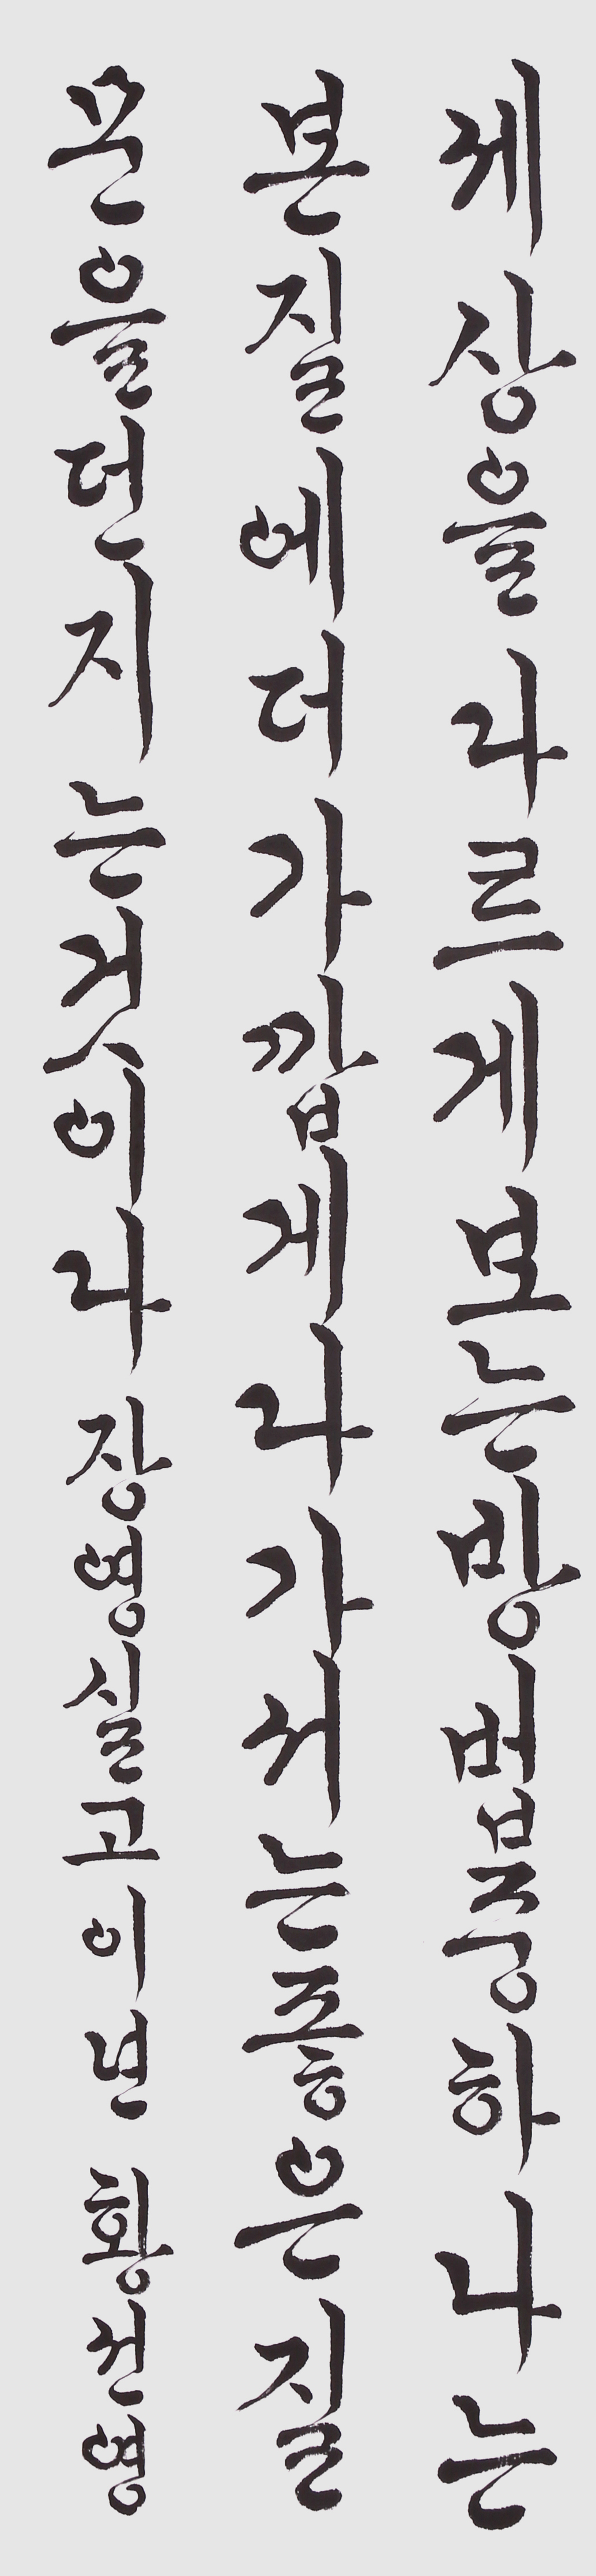 세상을 다르게 보는 방법 중 하나는
본질에 더 가깝게 다가서는 좋은 질
문을 던지는 것이다 장영실고 이년 황선영